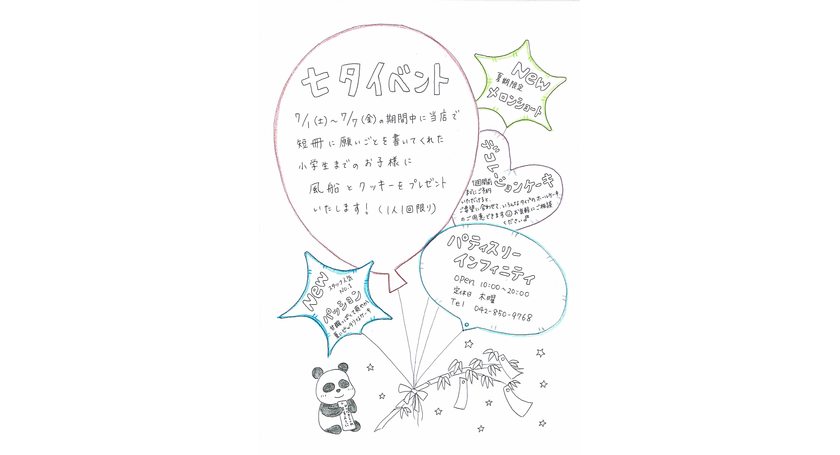 七夕イベント
7/1(土)～7/7(金)の期間中に当店で
短冊に願いごとを書いてくれた
小学生までのお子様に
風船とクッキーをプレゼント
いたします！(1人1回限り)
New
夏期限定
メロンショート
デコレーションケーキ
1週間前
までにご予約
いただけると
ご希望に合わせて、いろんなタイプのホールケーキ
のご用意できます☺お気軽にご相談
ください♪
パティスリー
インフィニティ
open 10:00～20:00
定休日 木曜
Tel 042-850-9768
New
スタッフ人気
NO.1
パッション
甘酸っぱくて爽やか
夏にピッタリなケーキ